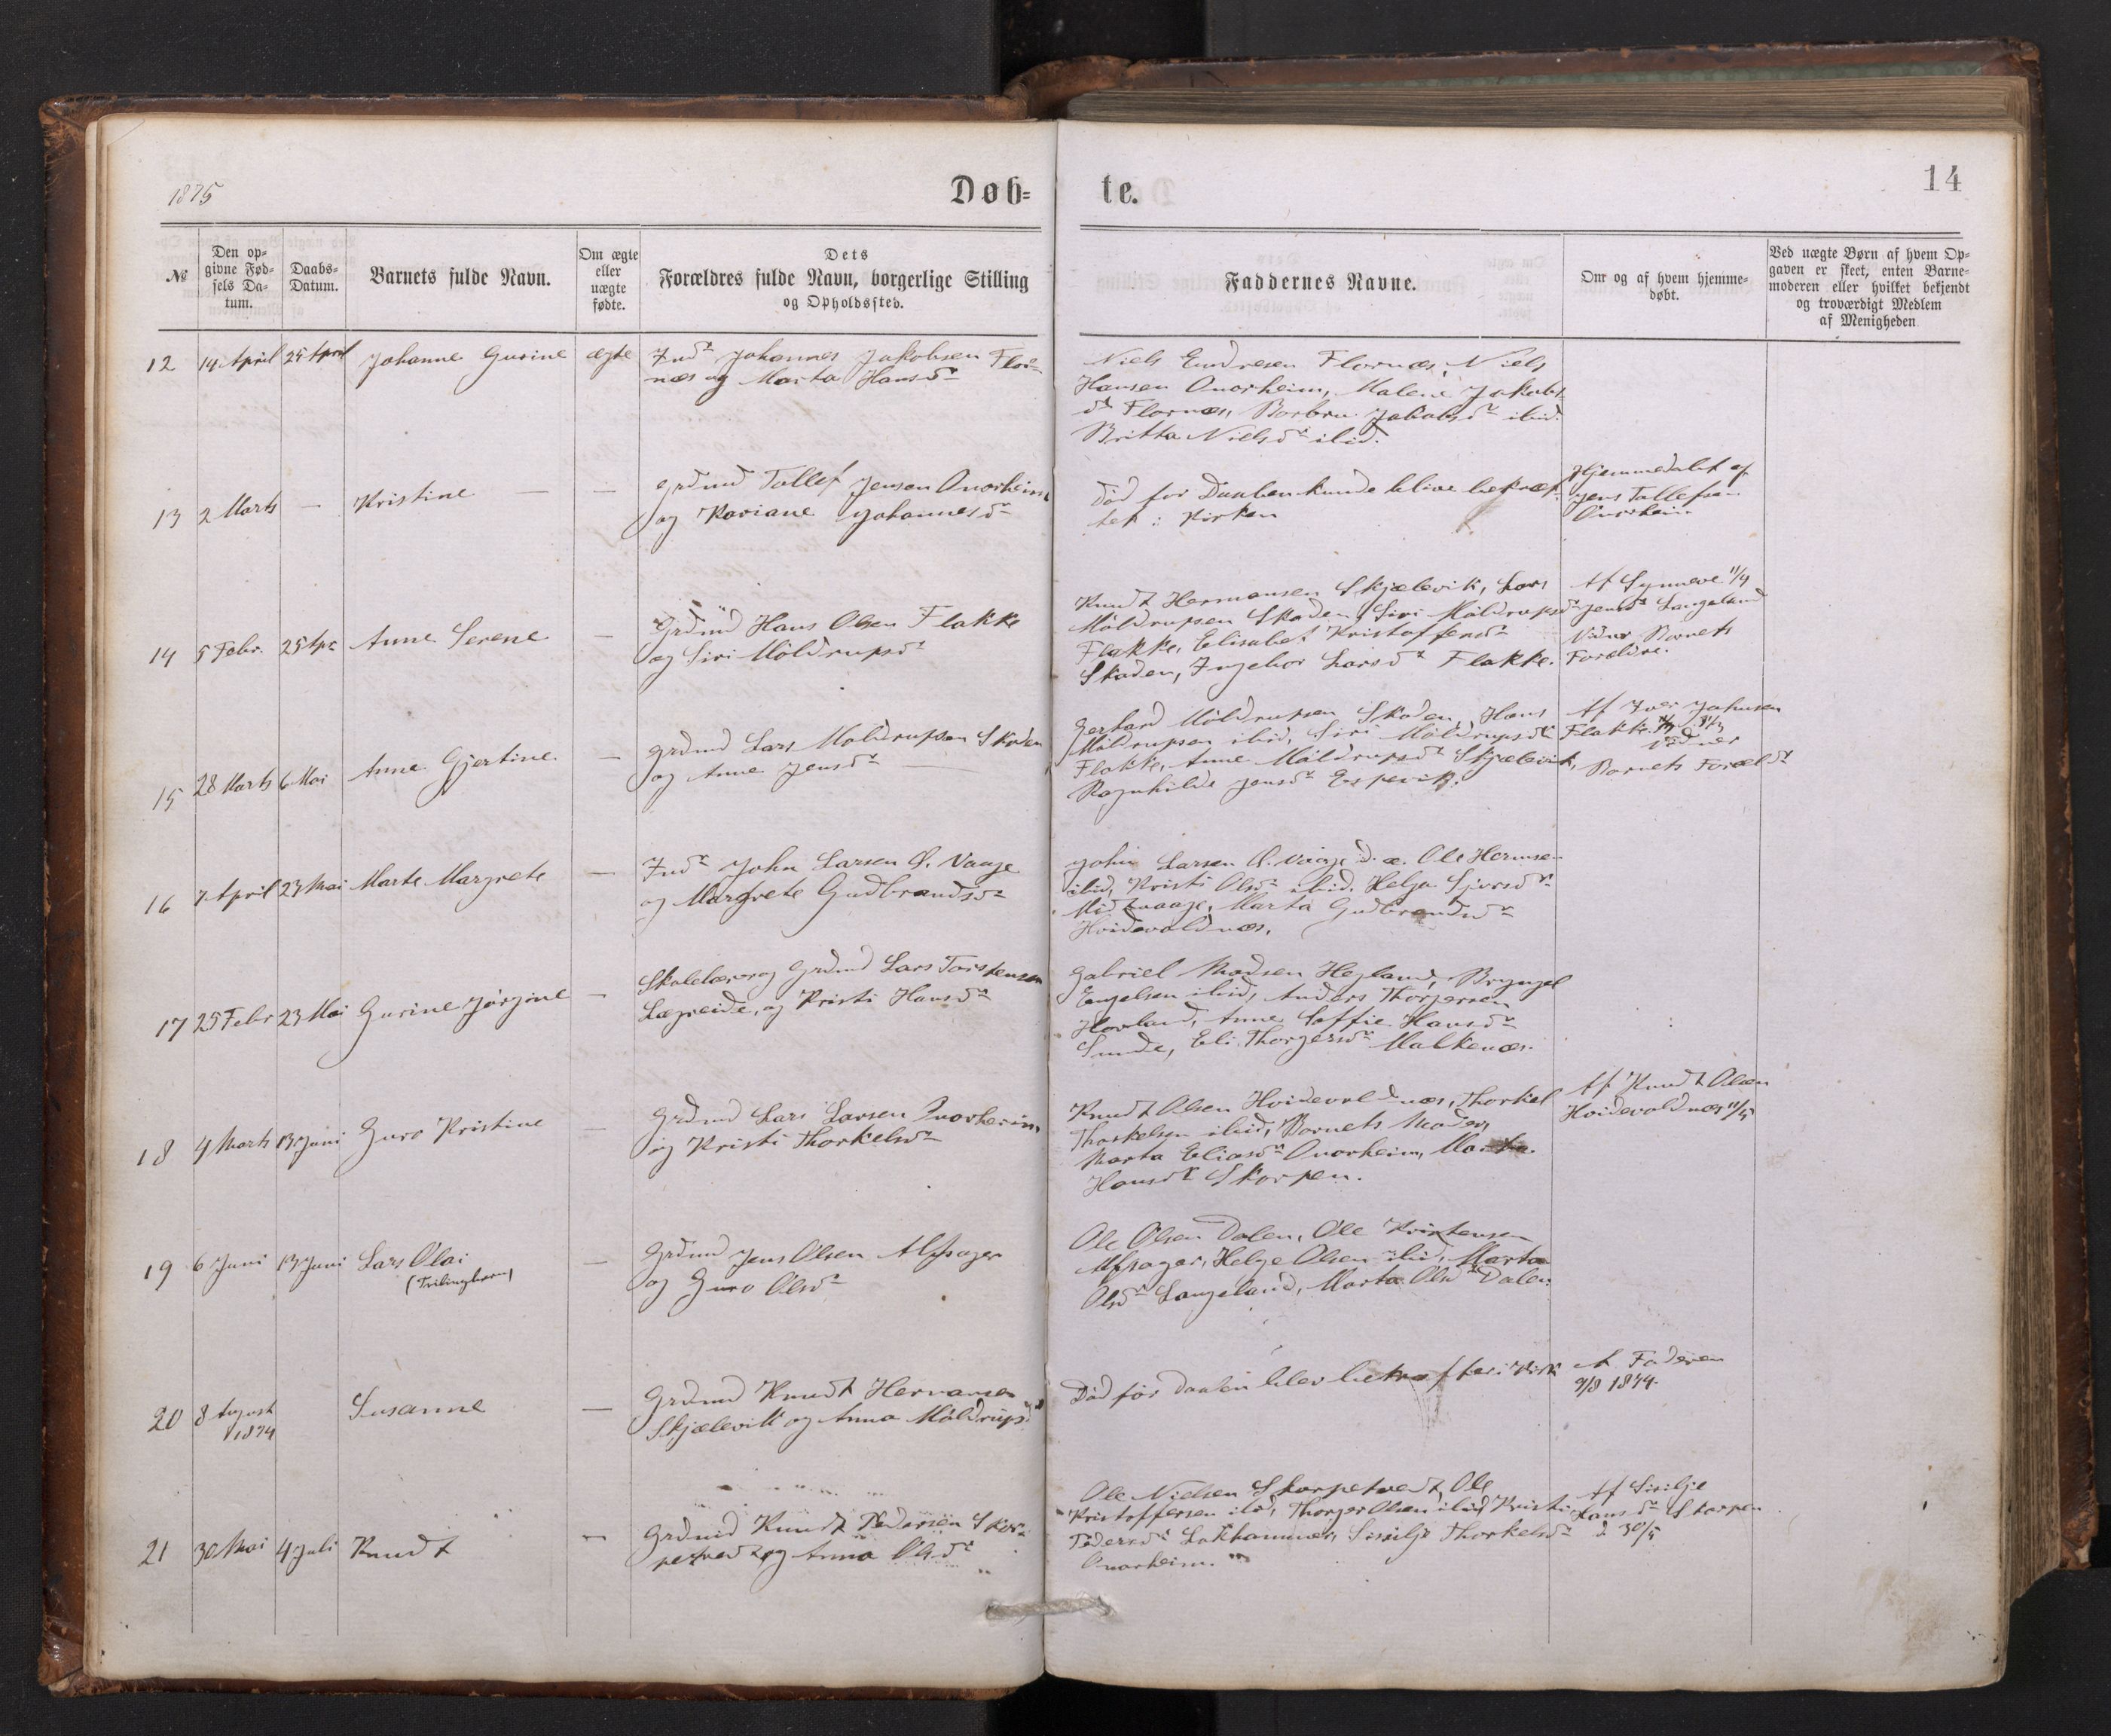 1875
Døb-
te.
14
№
Den op-
givne Fød-
sels Da-
tum.
Daabs-
Datum.
Barnets fulde Navn.
Om ægte
eller
uægte
fødte.
Dets
Forældres fulde Navn, borgerlige Stilling
og Opholdssted.
Faddernes Navne.
Om og af hvem hjemme-
døbt.
Ved uægte Børn af hvem Op-
gaven er skeet, enten Barne-
moderen eller hvilket bekjendt
og troværdigt Medlem
af Menigheden
12 14 April 25 April Johanne Gurine ægte Indr Johannes Jakobsen Flor-
næs og Marta Hansdr
Niels Endresen Flornæs, Niels
Hansen Onarheim, Malene Jakobs
dr Flornæs, Borbra Jakobsdr ibid.
Britta Nielsdr ibid.
13 2 Marts — Kristine — — Grdmd Tollef Jensen Onarheim
og Kariane Johannesdr
Död for Daaben kunde blive bekræf-
tet i Kirken
Hjemmedøbt af
Jens Tollefsen
Onarheim
14 5 Febr. 25 Apr Anne Serene — Grdmd Hans Olsen Flakke
og Siri Möldrupsdr
Knudt Hermansen Skjælevik, Lars
Möldrupsen Skaden, Siri Möldrupsdr
Flakke, Elisabet Kristoffersdr
Skaden, Ingebor Larsdr Flakke.
Af Synneve 11/4
Jensdr Langeland
Vidner Barnets
Forældre.
15 28 Marts 6 Mai Anne Gjertine — Grdmd Lars Möldrupsen Skaden
og Anne Jensdr
Gerhard Möldrupsen Skaden, Hans
Möldrupsen ibid, Siri Möldrupsdr
Flakke, Anne Möldrupsdr Skjælevik,
Ragnhilde Jensdr Espevik.
Af Iver Johnsen
Flakke 31/3
Vidner
Barnets Foræld
16 7 April 23 Mai Marte Margrete — Indr John Larsen Ö. Vaage
og Margrete Gudbrandsdr
John Larsen Ö. Vaage d. æ. Ole Hermsen
ibid, Kristi Olsdr ibid. Helga Sjursdr
Midtvaage, Marta Gudbrandsdr
Hvidevoldnæs.
17 25 Febr 23 Mai Gurine Jørgine — Skolelærer og Grdmd Lars Torstensen
Lægreide, og Kristi Hansdr
Gabriel Madsen Hegland, Brynjel
Engelsen ibid, Anders Thorgersen
Hovland, Anne Soffie Hansdr
Sunde, Eli Thorgersdr Malkenæs.
18 4 Marts 13 Juni Guro Kristine — Grdmd Lars Larsen Onarheim
og Kristi Thorkelsdr
Knudt Olsen Hvidevoldnæs, Thorkel
Thorkelsen ibid, Barnets Moder,
Marta Eliasdr Onarheim, Marta
Hansdr Skorpen.
Af Knudt Olsen
Hvidevoldnæs 11/5
19 6 Juni 13 Juni Lars Olai
(Trilingbarn)
— Grdmd Jens Olsen Alfsager
og Guro Olsdr
Ole Olsen Dalen, Ole Kristensen
Alfsager, Helge Olsen ibid, Marta
Olsdr Langeland, Marta Olsdr Dalen
20 8 August
1874
Susanne — Grdmd Knudt Hermansen
Skjælevik og Anna Möldrupsdr
Död før Daaben blev bekræftet i Kirk
Af Faderen
9/8 1874.
21 30 Mai 4 Juli Knudt — Grdmd Knudt Pedersen Skor-
petvedt og Anna Olsdr
Ole Nielsen Skorpetvedt, Ole
Kristoffersen ibid, Thorger Olsen ibid, Kristi
Pedersdr Lökhammer, Sissilje Thorkelsdr
Onarheim.
Af Sisilje
Hansdr Skorpen
d 30/5